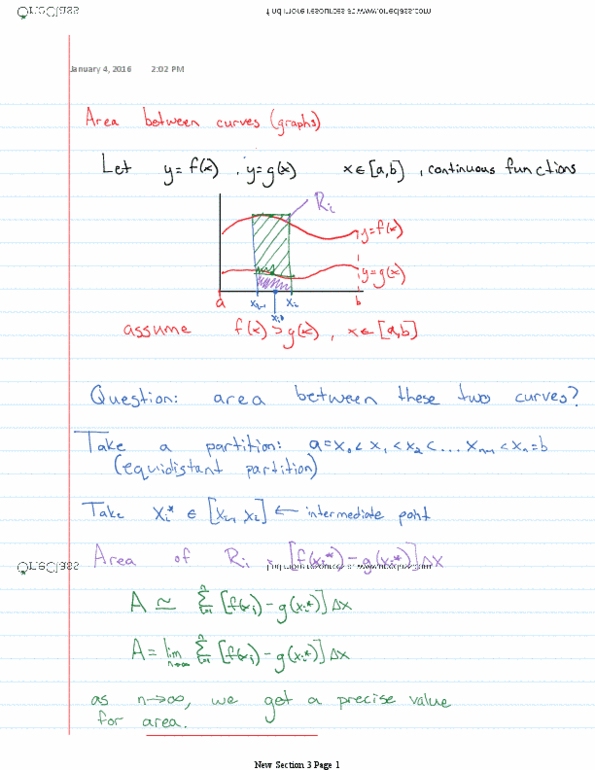 OneClass find more resources at www.oneclass.com
January 4, 2016 2:02 PM
Area between curves (graphs)
Let y=f(x) , y=g(x) x∈[a,b] , continuous functions
Ri
y=f(x)
y=g(x)
a xi-1 xi b
xi*
assume f(x)>g(x) , x∈[a,b]
Question: area between these two curves?
Take a partition: a=x0<x1<x2<...xn-1<xn=b
(equidistant partition)
Take xi* ∈ [xi-1, xi] ← intermediate point
Area of Ri = [f(xi*)-g(xi*)]Δx
OneClass find more resources at www.oneclass.com
A ≃ Σ i=1 n [f(xi)-g(xi*)]Δx
A = lim n→∞ Σ i=1 n [f(xi)-g(xi*)]Δx
as n→∞, we get a precise value
for area.
New Section 3 Page 1